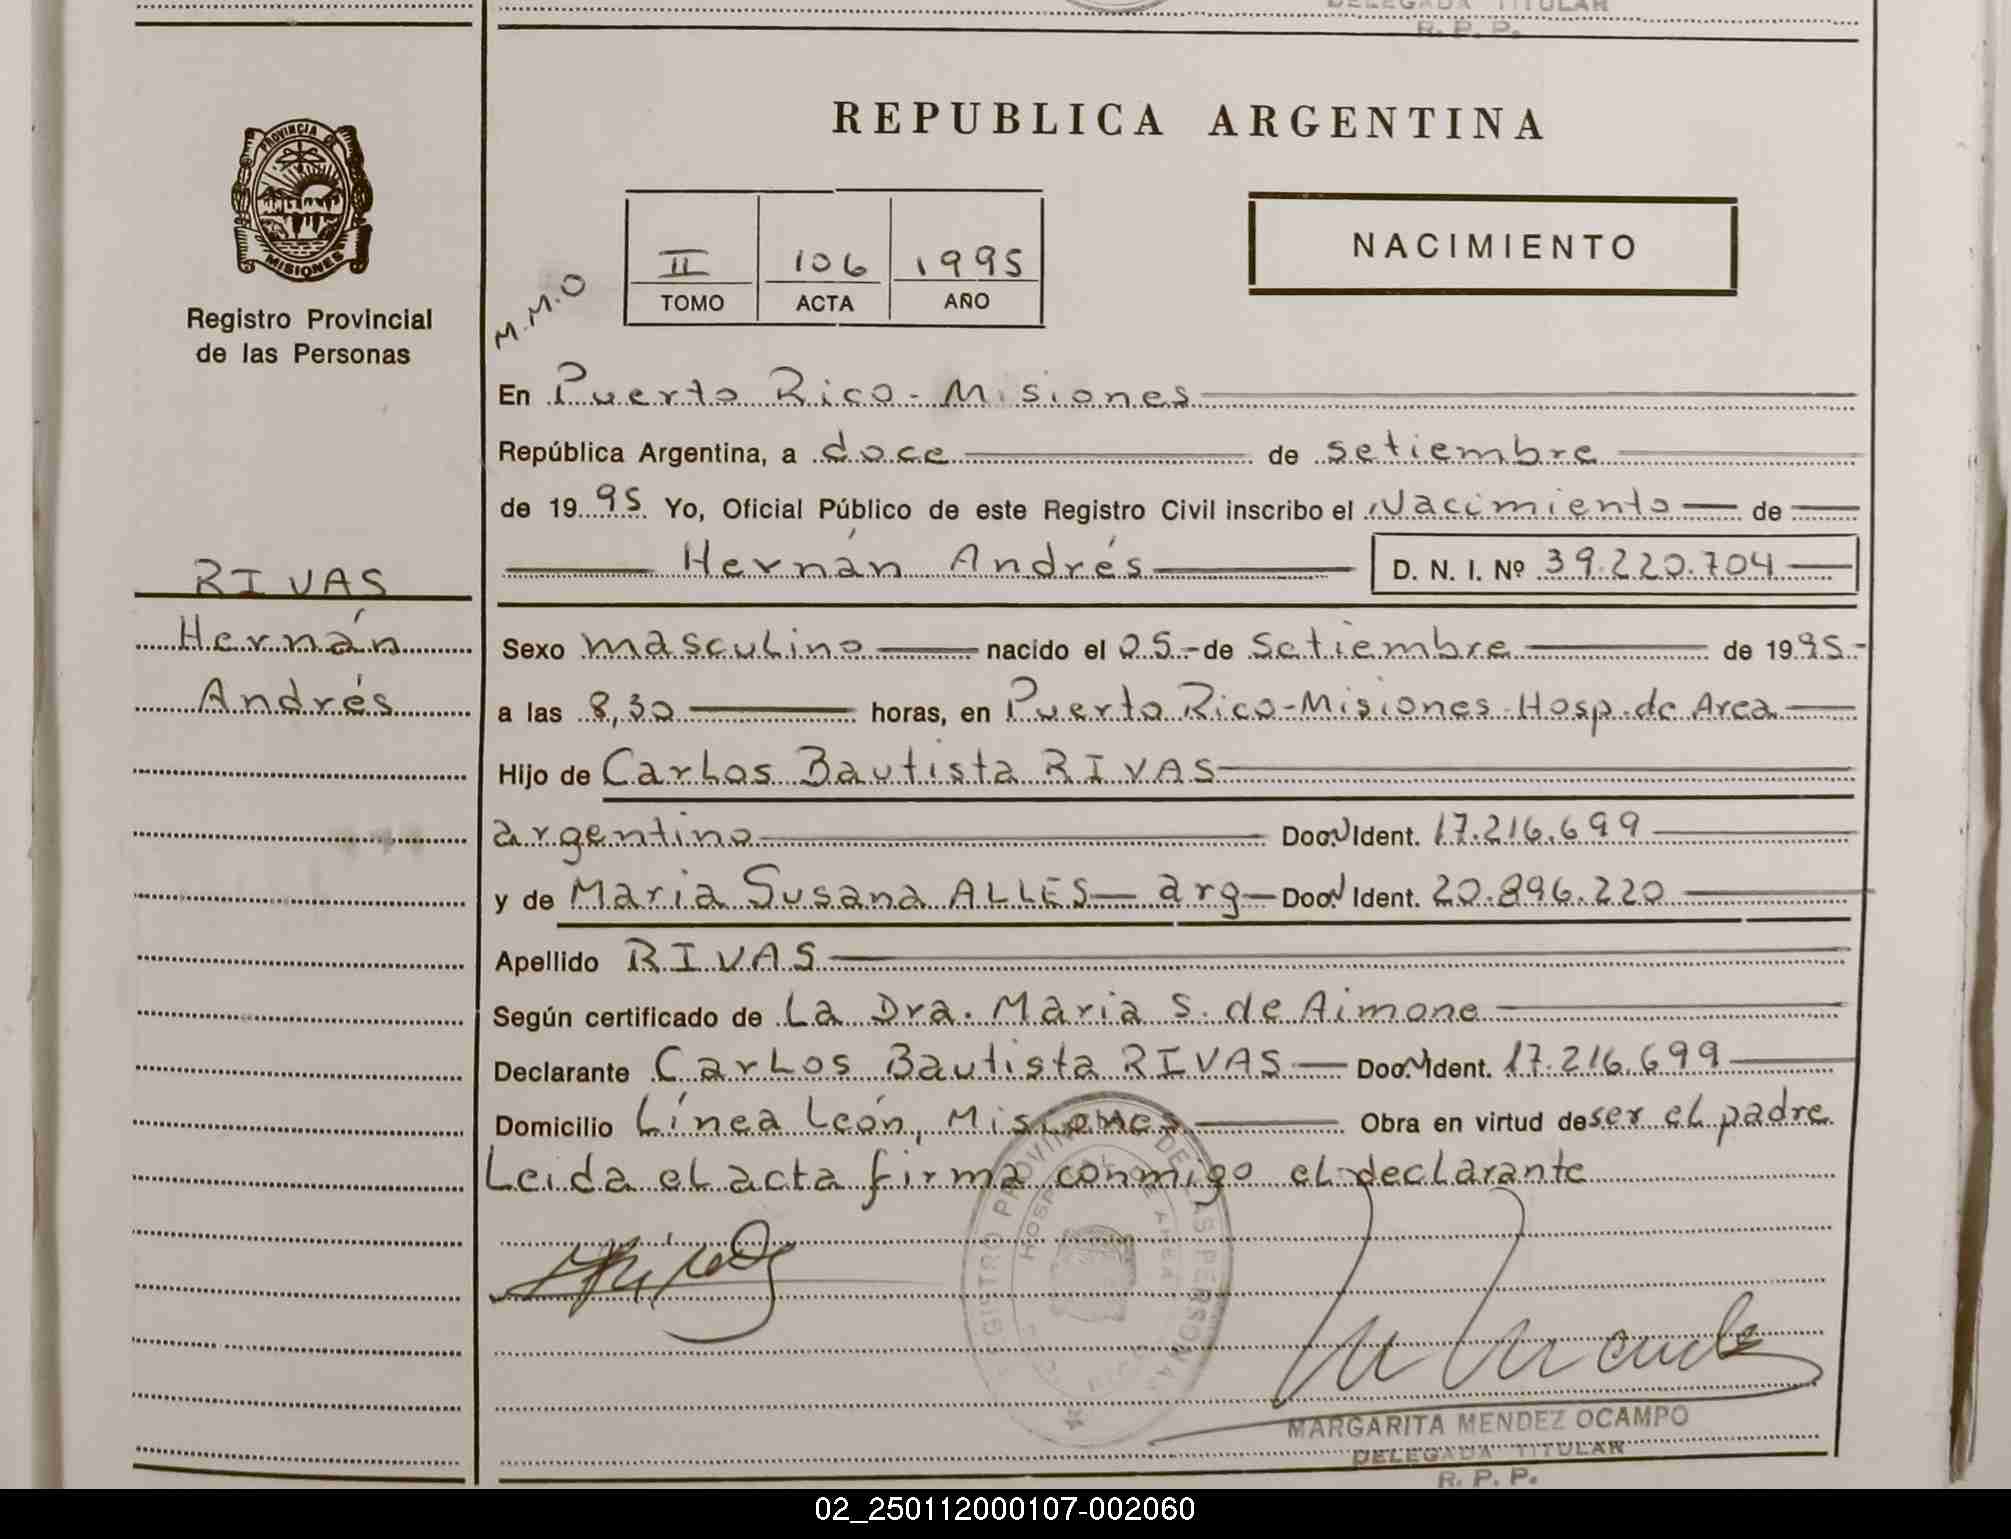 DELEGADA TITULAR
R. P. P.
PROVINCIA DE
MISIONES
Registro Provincial
de las Personas
RIVAS
Hernán
Andrés
REPUBLICA ARGENTINA
M.M.O
II 106 1995
TOMO ACTA AÑO
NACIMIENTO
En Puerto Rico - Misiones
República Argentina, a doce de setiembre
de 1995 Yo, Oficial Público de este Registro Civil inscribo el Nacimiento de
Hernán Andrés D. N. I. Nº 39.220.704
Sexo masculino nacido el 05 - de setiembre de 1995.-
a las 8,30 horas, en Puerto Rico - Misiones - Hosp. de Area
Hijo de Carlos Bautista RIVAS
argentino Doc. Ident. 17.216.699
y de Maria Susana ALLES - arg - Doc. Ident. 20.896.220
Apellido RIVAS
Según certificado de La Dra. Maria S. de Aimone
Declarante Carlos Bautista RIVAS Doc. Ident. 17.216.699
Domicilio Línea León, Misiones Obra en virtud de ser el padre
Leida el acta firma conmigo el declarante
REGISTRO PROVINCIAL DE LAS PERSONAS
HOSPITAL DE AREA
MARGARITA MENDEZ OCAMPO
DELEGADA TITULAR
R. P. P.
02_250112000107-002060